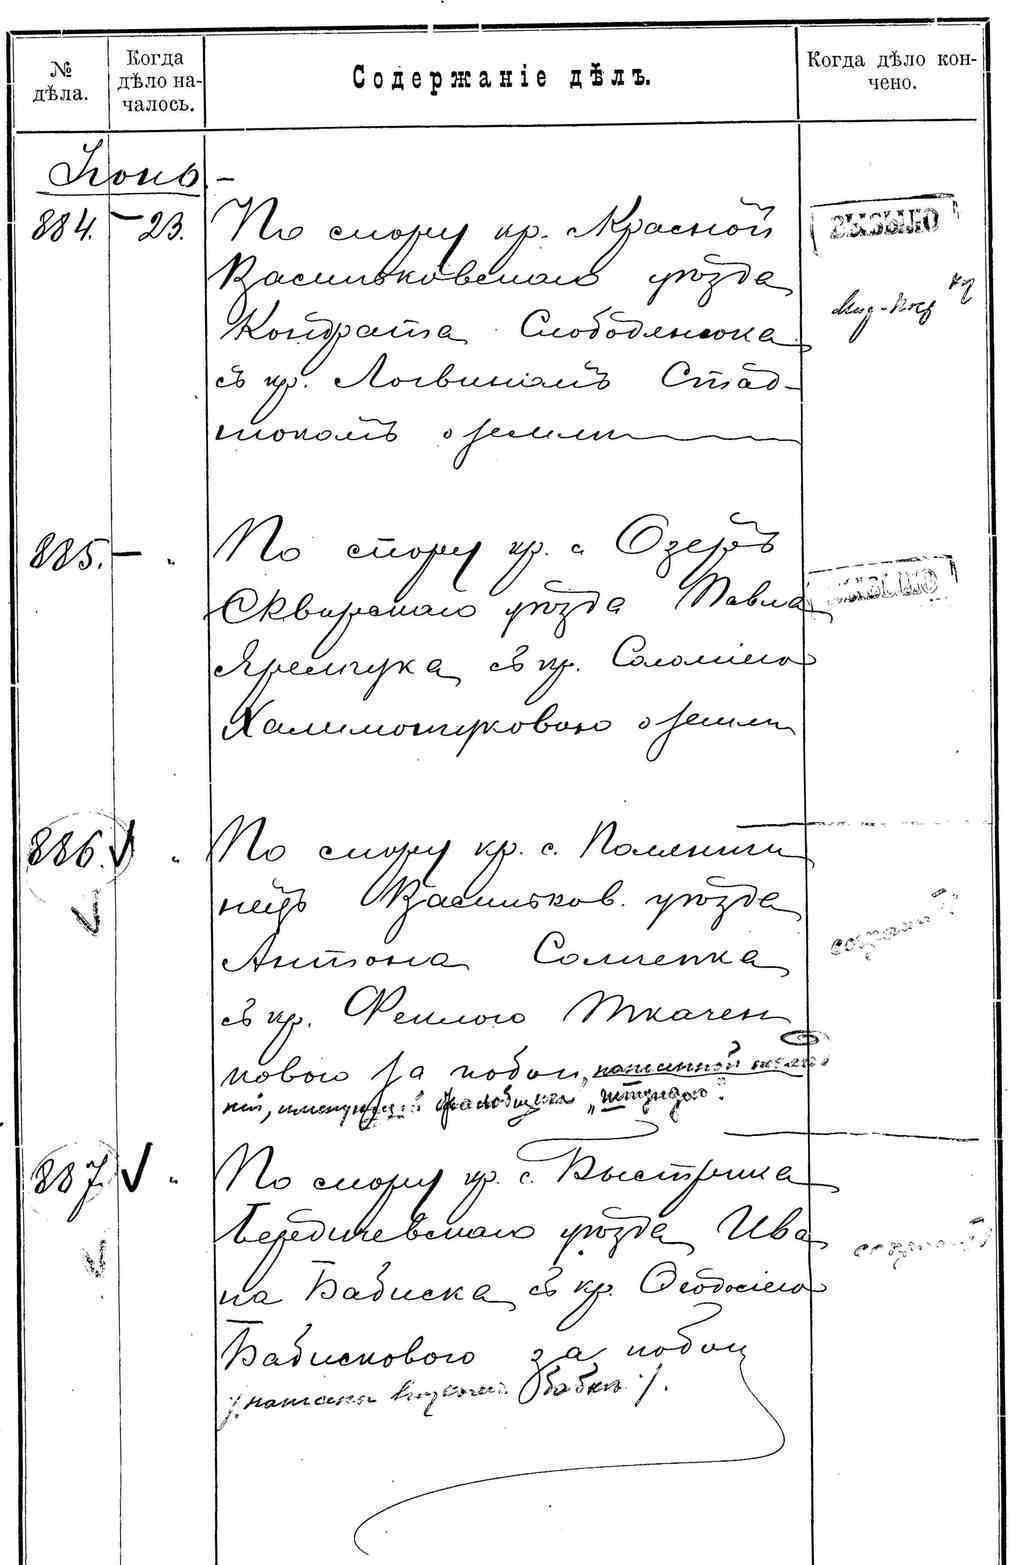 № дѣла.
Когда дѣло на-
чалось.
Содержаніе дѣлъ.
Когда дѣло кон-
чено.
Іюнь.-
884. - 23. По спору кр. Красной
Васильковскаго уѣзда
Кондрата Слободянюка
съ кр. Логвиномъ Стад-
нюкомъ о землѣ
ВЫБЫЛО
885. - " По спору кр. с Озеръ
Сквирскаго уѣзда Павла
Яремчука съ кр. Соломіею
Халимончуковою о землѣ
886. " По спору кр. с.
нецъ Васильков. уѣзда
Антона
съ кр. Феклою Ткачен
ковою за побои, нанесенной
"штундою".
887. " По спору кр. с. Быстрика
Бердичевскаго уѣзда Ива
на Бабиска съ кр. Ѳеодосіею
Бабисковою за побои
бабкѣ ./.